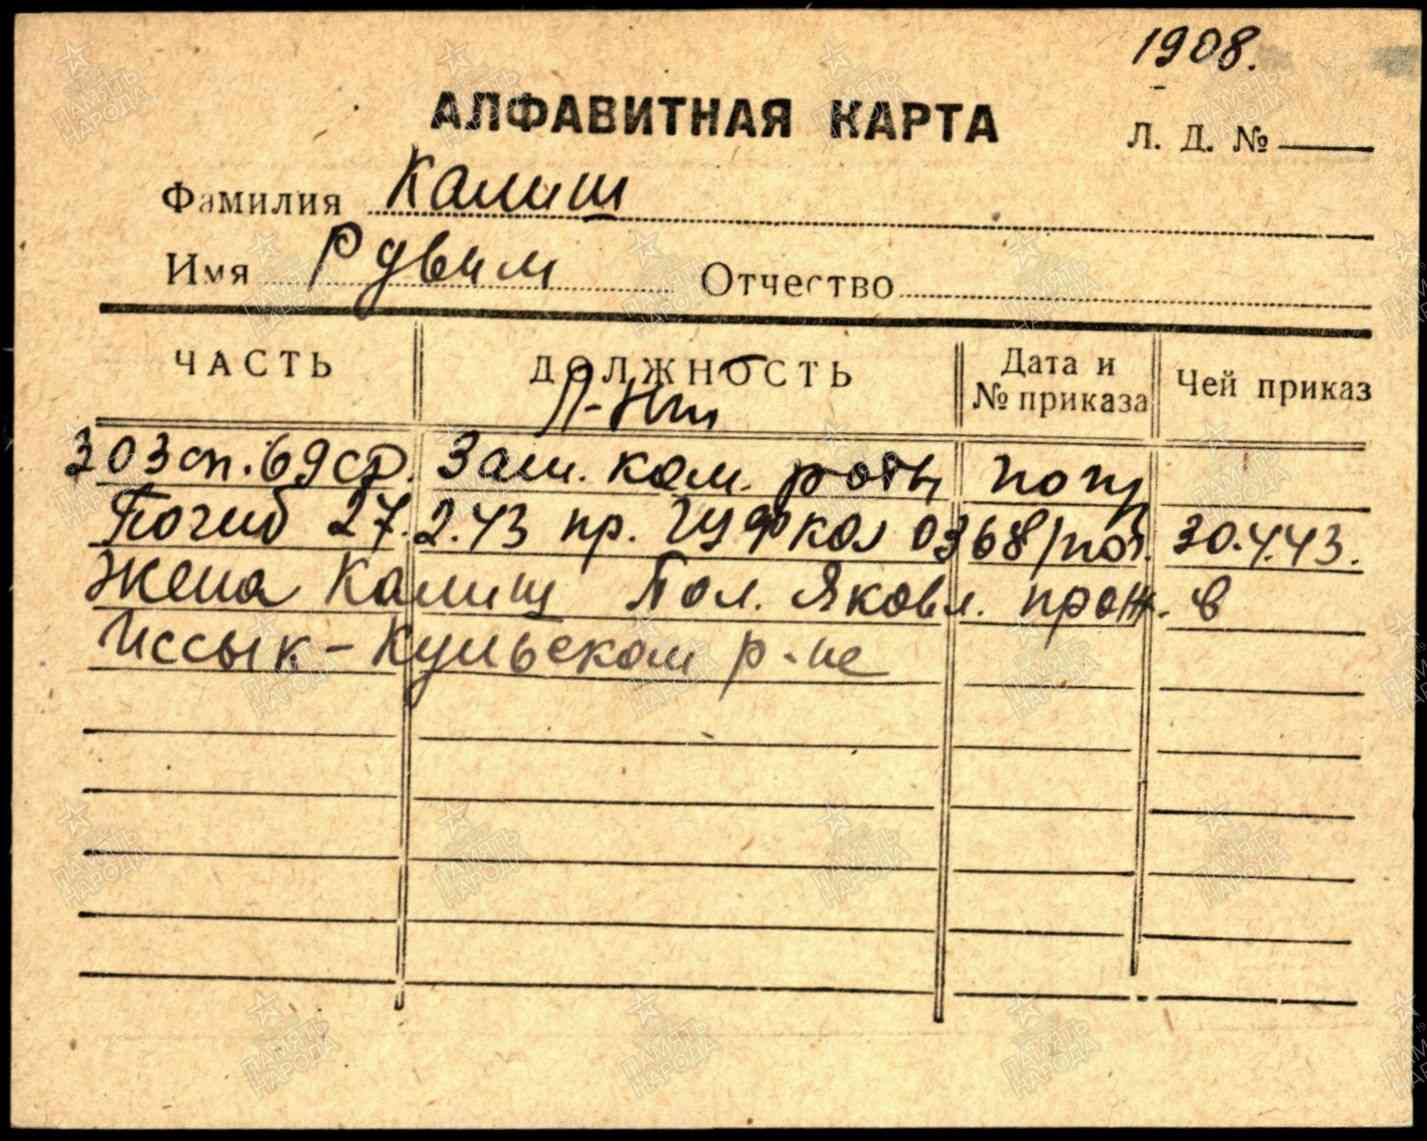 1908.
АЛФАВИТНАЯ КАРТА
Л. Д. №
Фамилия Калиш
Имя Рувим Отчество
ЧАСТЬ ДОЛЖНОСТЬ Дата и № приказа Чей приказ
Л-нт
303 сп. 69 сд. Зам. ком. роты по
Погиб 27.2.43 пр. ЦФ 0368/пог. 30.4.43.
Жена Калиш Пол. Яковл. прож. в
Иссык-Кульском р-не